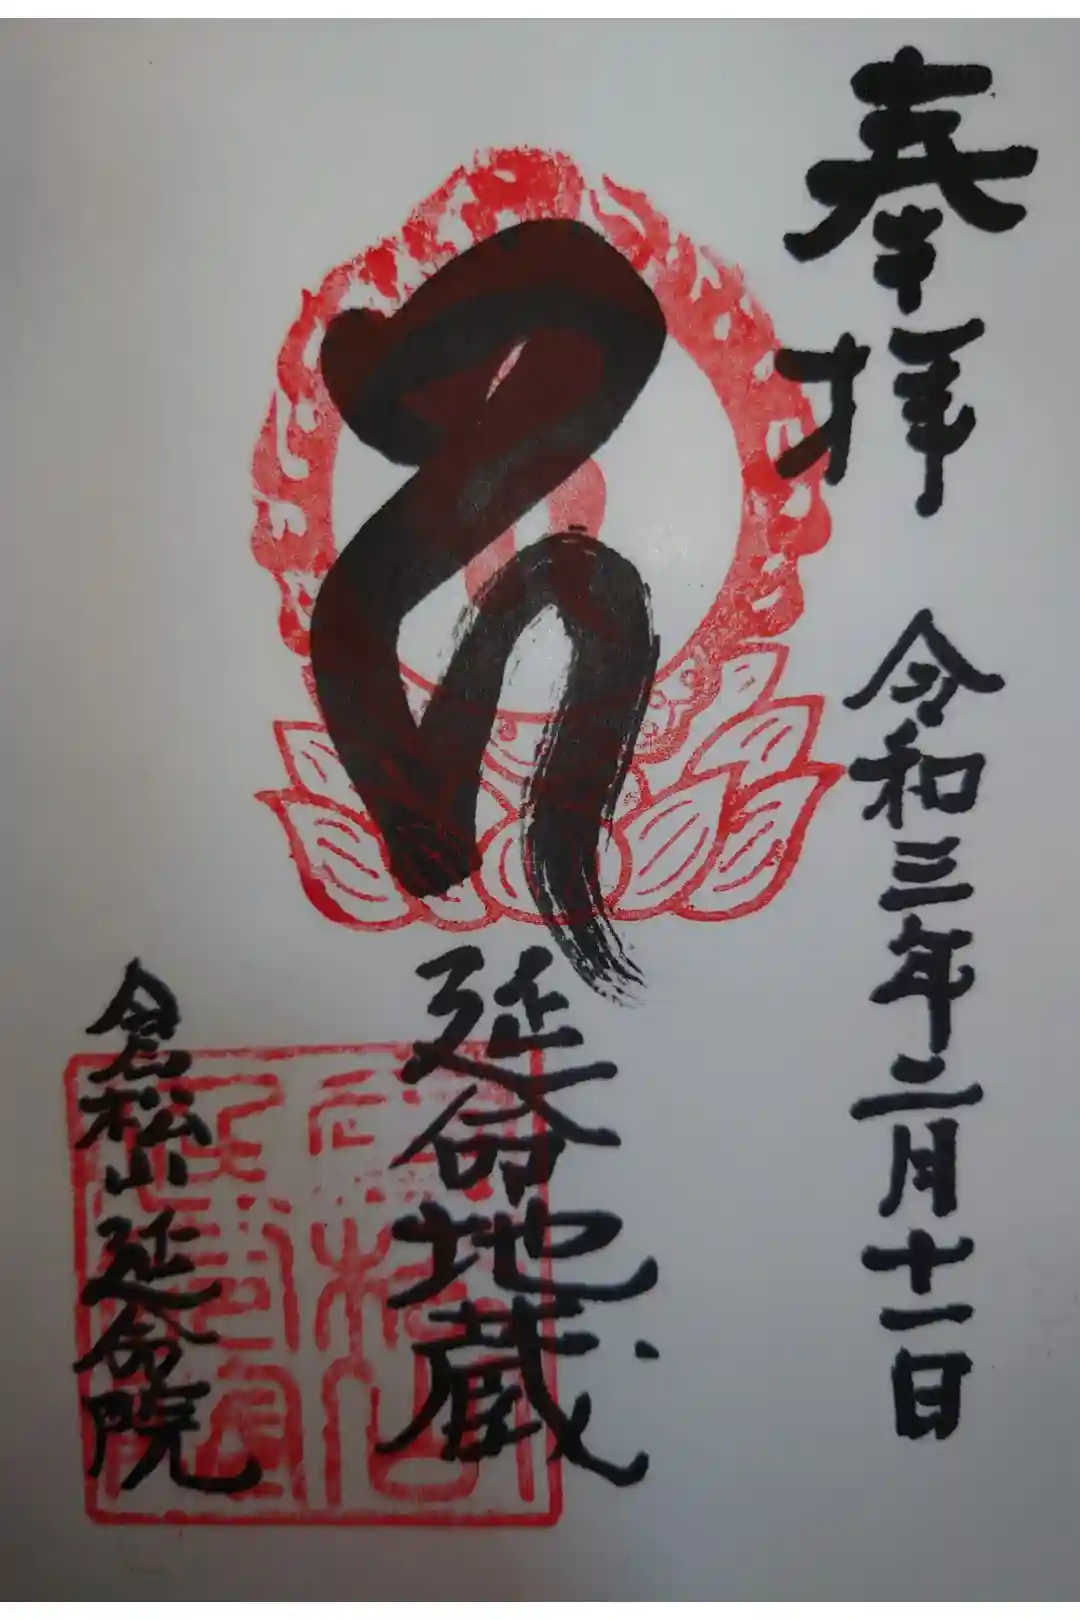 奉拝　令和三年二月十一日
延命地蔵
倉松山延命院